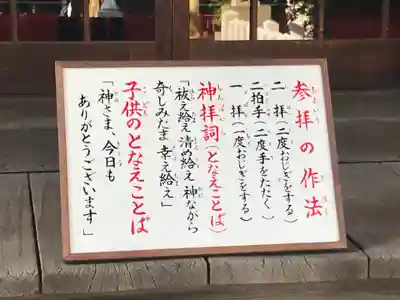 参拝の作法
二 拝（二度おじぎをする）
二拍手（二度手をたたく）
一 拝（一度おじぎをする）
神拝詞（となえことば）
「祓え給え 清め給え 神ながら
奇しみたま 幸え給え」
子供のとなえことば
「神さま、今日も
ありがとうございます」